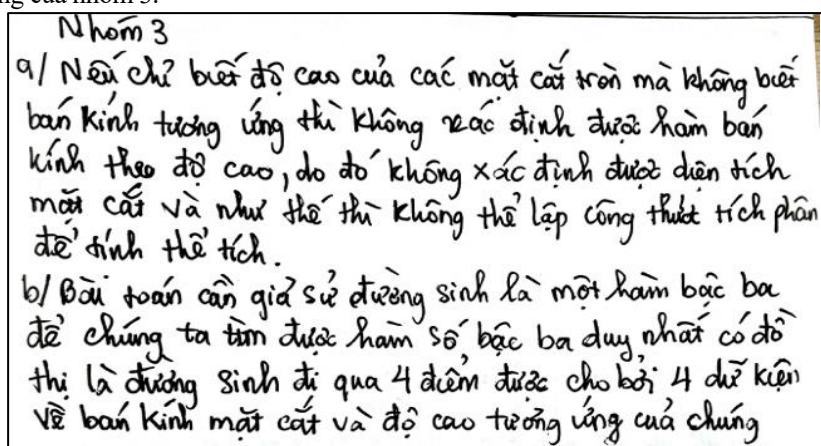 ng của nhóm 3.
Nhóm 3
a/ Nếu chỉ biết độ cao của các mặt cắt tròn mà không biết
bán kính tương ứng thì không xác định được hàm bán
kính theo độ cao, do đó không xác định được diện tích
mặt cắt và như thế thì không thể lập công thức tích phân
để tính thể tích.
b/ Bài toán cần giả sử đường sinh là một hàm bậc ba
để chúng ta tìm được hàm số bậc ba duy nhất có đồ
thị là đường sinh đi qua 4 điểm được cho bởi 4 dữ kiện
về bán kính mặt cắt và độ cao tương ứng của chúng